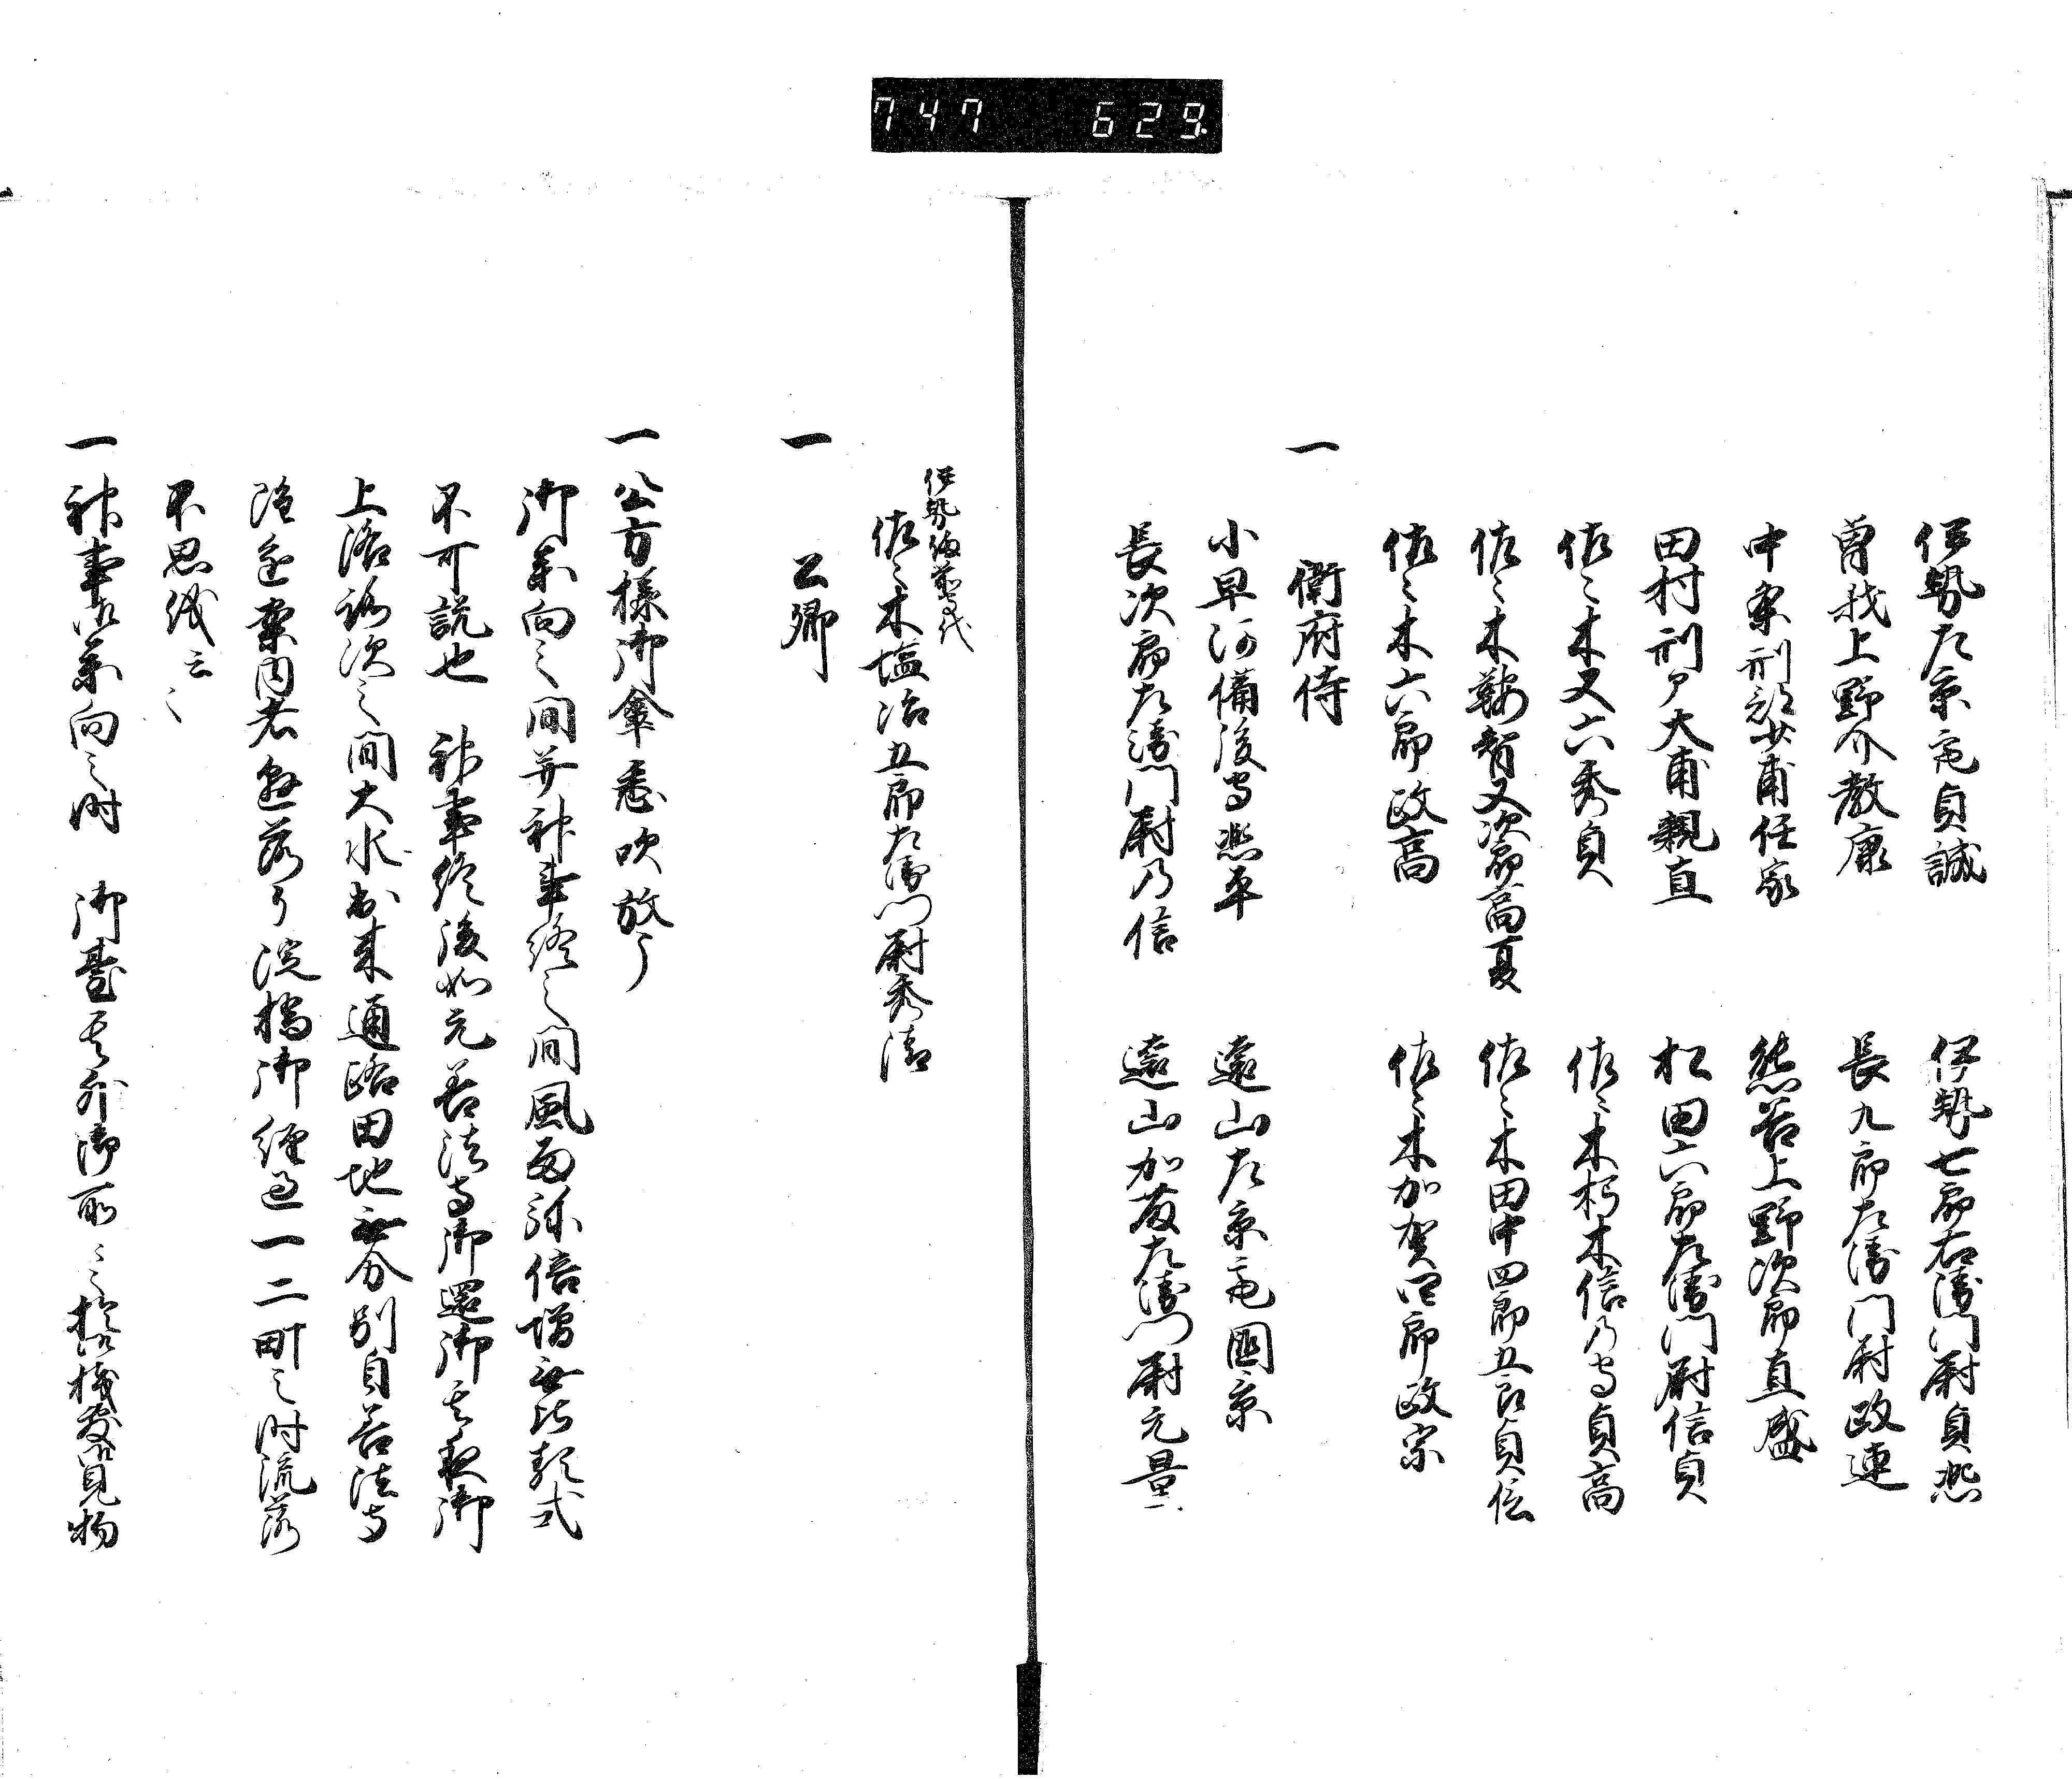 747 629
伊勢左京亮貞誠　伊勢七郎右衛門尉貞熙
曽我上野介教康　長九郎左衛門尉政連
中条刑部少甫任家　熊谷上野次郎直盛
田村刑ア大甫親直　松田六郎左衛門尉信貞
佐々木又六秀貞　佐々木朽木信乃守貞高
佐々木鞍智又次郎高夏　佐々木田中四郎五郎貞信
佐々木六郎政高　佐々木加賀四郎政宗
一　衛府侍
小早河備後守熙平　遠山左京亮国景
長次郎左衛門尉乃信　遠山加藤左衛門尉元量
伊勢備前守代
佐々木塩冶五郎左衛門尉秀清
一　公卿
一 公方様御傘悉吹放了
御参向之間并神事終之間風雨弥倍増無比類式
不可説也　神事終後如元善法寺御還御其夜御
上洛路次之間大水出来通路田地無分別自善法寺
進案内者無落了淀橋御経過一二町之時流落
不思儀云々
一 神事御参向之時　御臺其外御所々々於御桟敷御見物